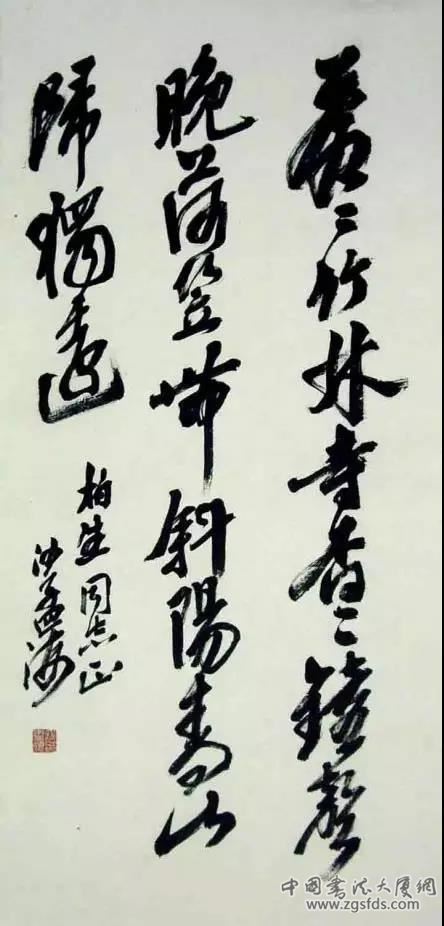 蒼〻竹林寺杳〻鐘聲
晚荷笠帶斜陽青山
歸獨遠
柏生同志正
沙孟海
中國書法大廈網
www.zgsfds.com